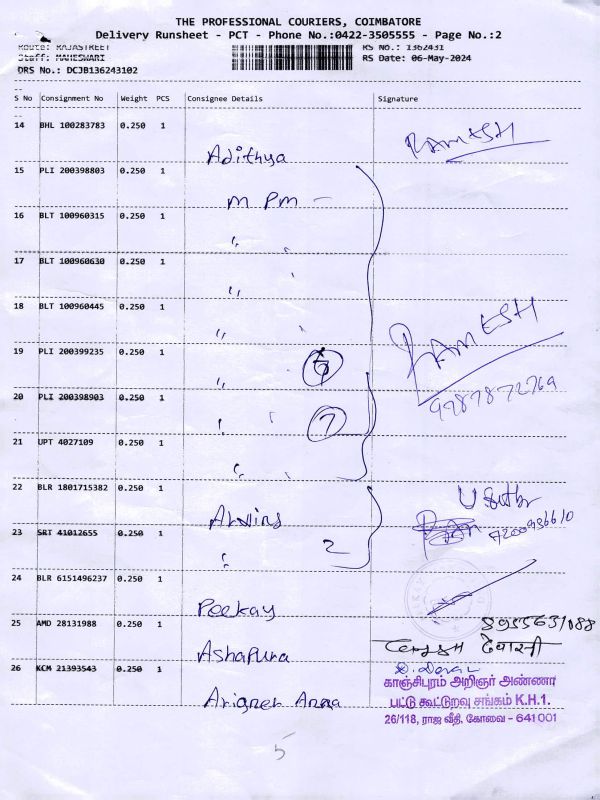 THE PROFESSIONAL COURIERS, COIMBATORE
Delivery Runsheet - PCT - Phone No.:0422-3505555 - Page No.:2
Route: RAJASTREET RS No.: 1362431
Staff: MAHESWARI RS Date: 06-May-2024
DRS No.: DCJB136243102
S No Consignment No Weight PCS Consignee Details Signature
14 BHL 100283783 0.250 1
Adithya RAMESH
15 PLI 200398803 0.250 1
M PM -
16 BLT 100960315 0.250 1
"
17 BLT 100960630 0.250 1
"
18 BLT 100960445 0.250 1
" RAMESH
19 PLI 200399235 0.250 1
"
20 PLI 200398903 0.250 1
" 7
21 UPT 4027109 0.250 1
"
22 BLR 1801715382 0.250 1
23 SRT 41012655 0.250 1
" 2
24 BLR 6151496237 0.250 1
Peekay
25 AMD 28131988 0.250 1
Ashapura
26 KCM 21393543 0.250 1
Arigner Anna
காஞ்சிபுரம் அறிஞர் அண்ணா
பட்டு கூட்டுறவு சங்கம் K.H.1.
26/118, ராஜ வீதி, கோவை - 641 001
5